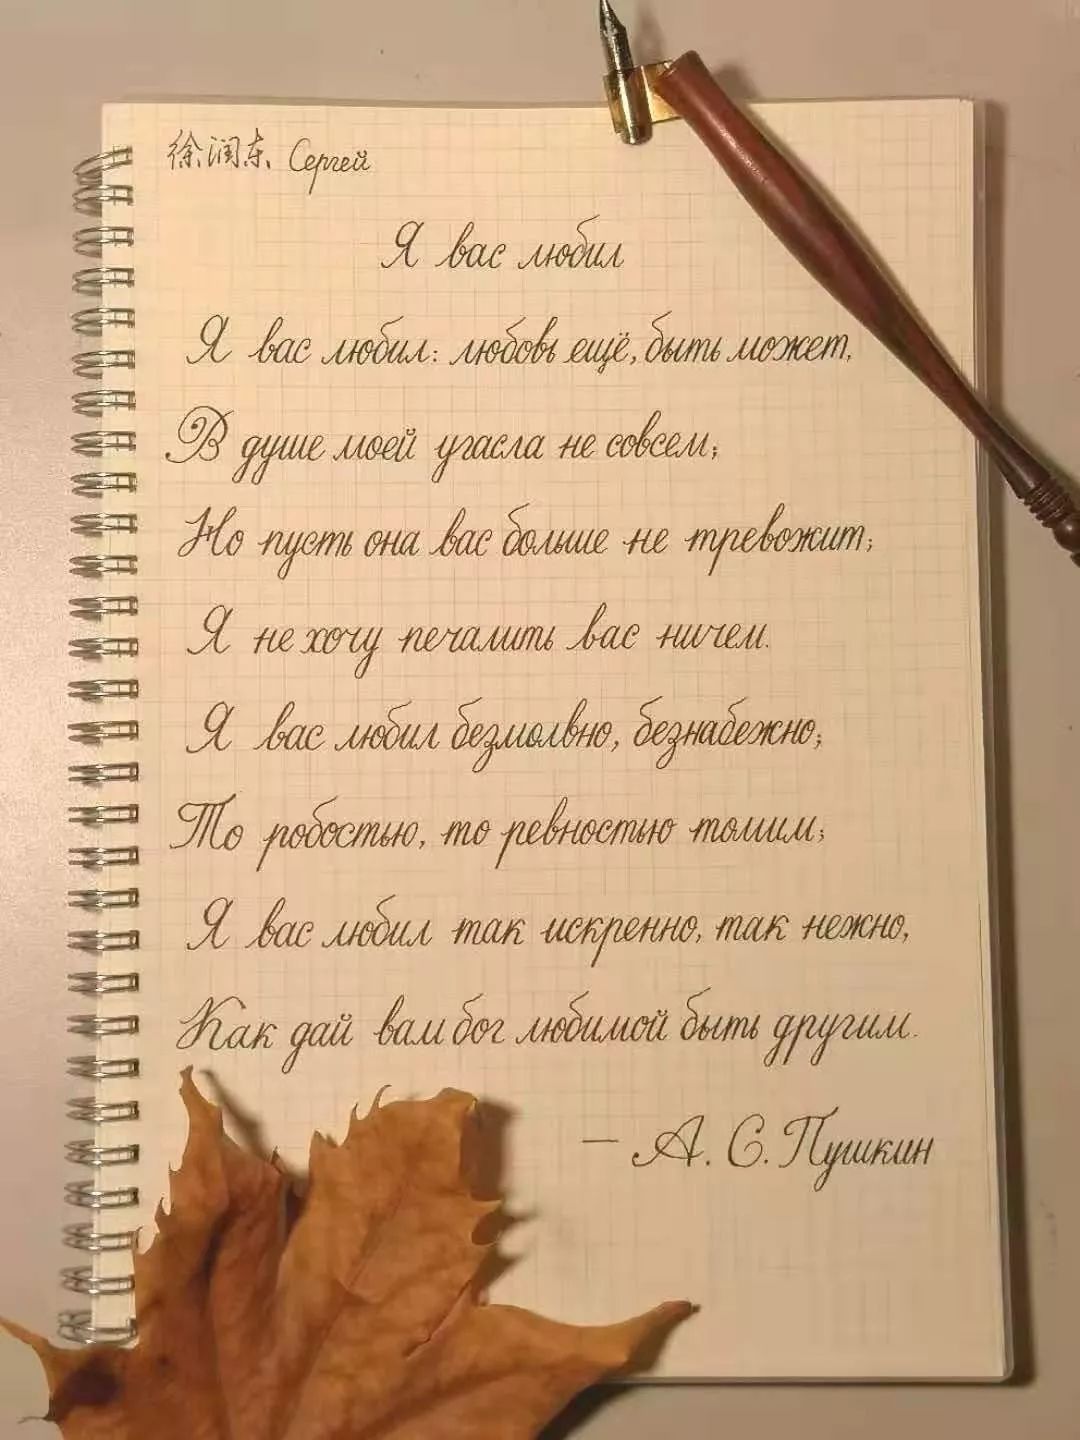 徐润东 Сергей
Я вас любил
Я вас любил: любовь ещё, быть может,
В душе моей угасла не совсем;
Но пусть она вас больше не тревожит;
Я не хочу печалить вас ничем.
Я вас любил безмолвно, безнабежно;
То робостью, то ревностью томим;
Я вас любил так искренно, так нежно,
Как дай вам бог любимой быть другим.
— А. С. Пушкин